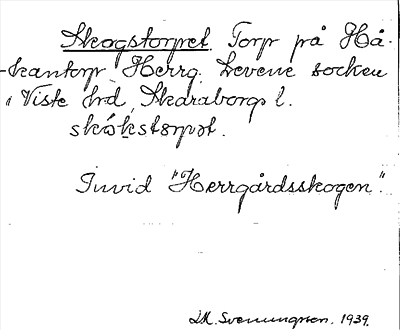 Skogstorpet. Torp på Hå-
-kantorp Herrg. Levene socken
i Viste hrd, Skaraborgs l.
skókstørpət.
Invid "Herrgårdsskogen".
I.M. Svenungsson. 1939.